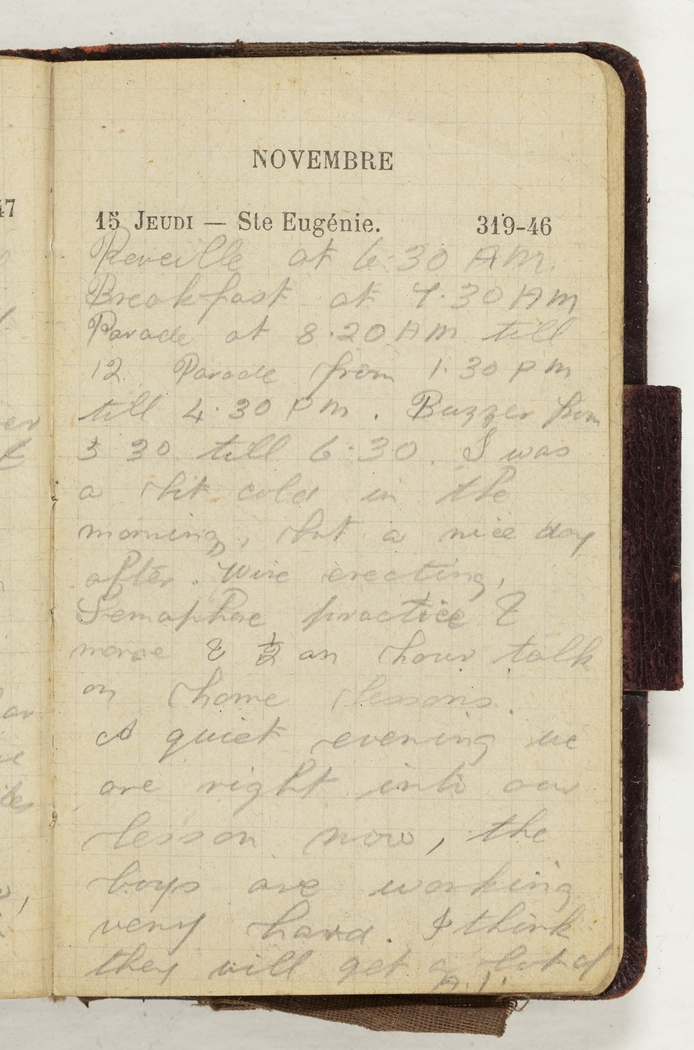 47
NOVEMBRE
15 JEUDI — Ste Eugénie. 319-46
Reveille at 6.30 AM.
Breakfast at 7.30 AM
Parade at 8.20 AM till
12. Parade from 1.30 PM
till 4.30 PM. Buzzer from
5 30 till 6.30. I was
a bit cold in the
morning, but a nice day
after. Wire erecting,
Semaphore practice &
morse & ½ an hour talk
on home lessons.
A quiet evening we
are right into our
lesson now, the
boys are working
very hard. I think
they will get a lot of